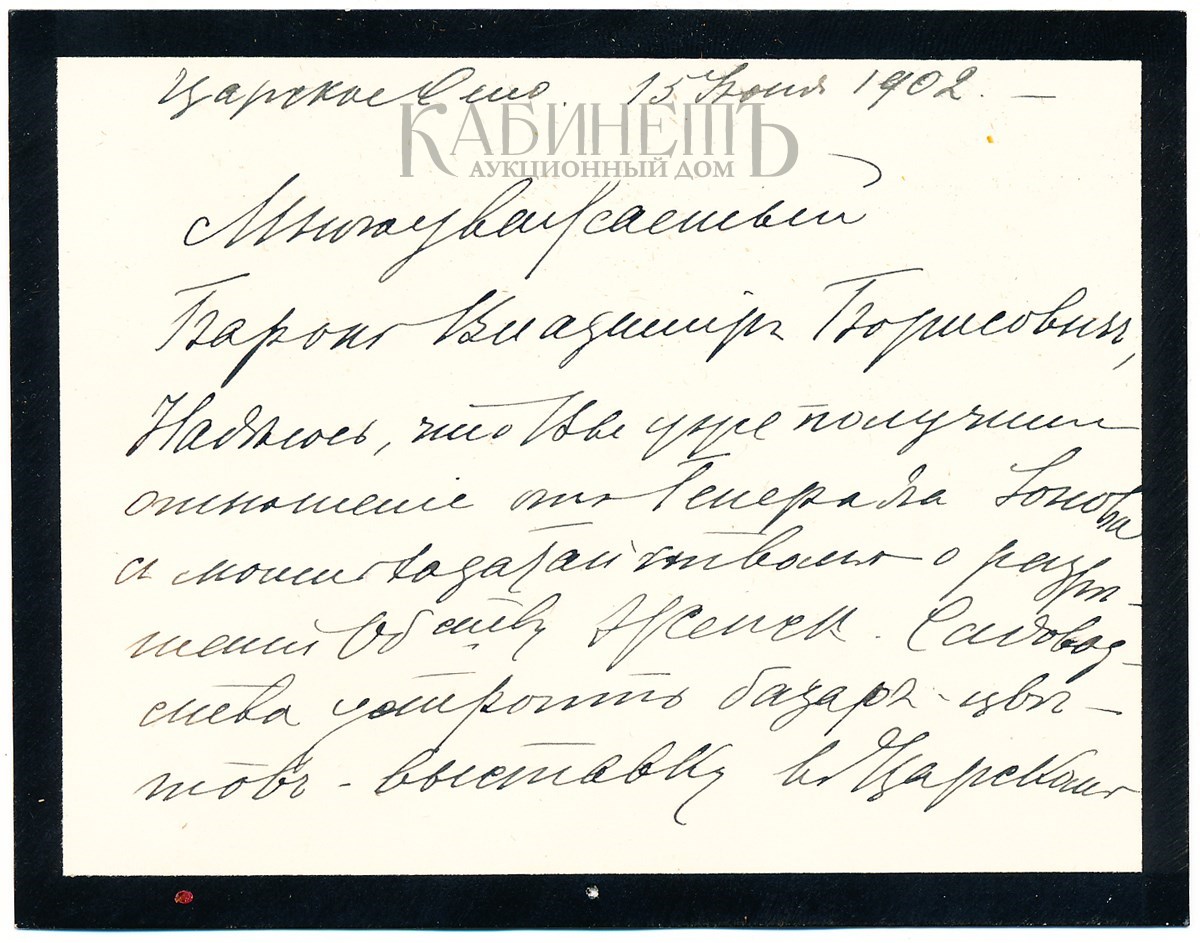 Царское Село. 15 Іюня 1902. —
КАБИНЕТЪ
АУКЦИОННЫЙ ДОМ
Многоуважаемый
Баронъ Владиміръ Борисовичъ,
Надѣюсь, что Вы уже получили
отношеніе отъ Генерала Іонова
съ моимъ ходатайствомъ о разрѣ-
шеніи Обству Женск. Садовод-
ства устроить базаръ-цвѣ-
товъ - выставку въ Царскомъ